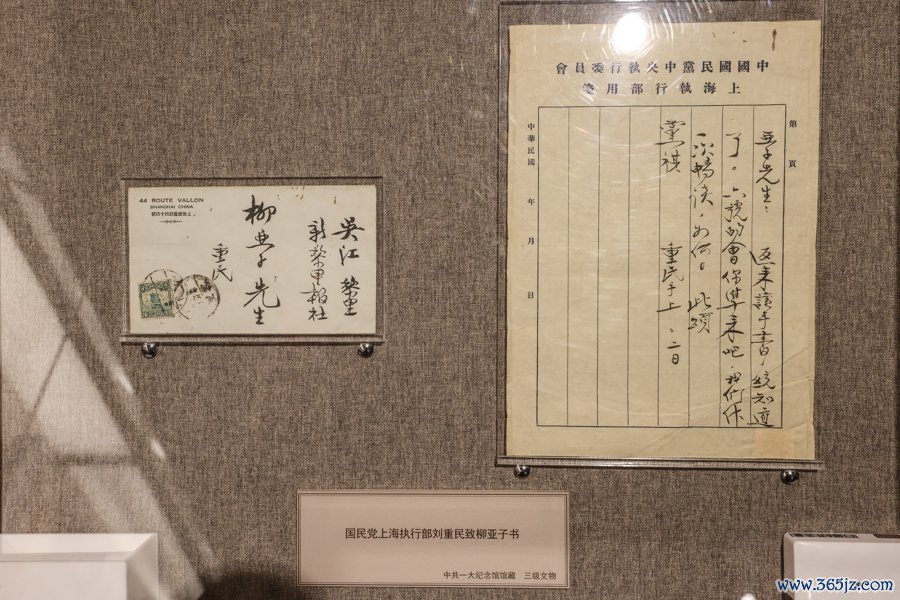 44 ROUTE VALLON
SHANGHAI CHINA
上海環龍路四十四號
吳江 黎里
新黎里報社
柳亞子先生
重民
中國國民黨中央執行委員會
上海執行部用箋
第 頁
亞子先生： 返來讀手書，統知道
了。六號的會你準來吧，我們作
一次暢談，如何？此頌
黨祺 重民手上 二日
中華民國 年 月 日
国民党上海执行部刘重民致柳亚子书
中共一大纪念馆馆藏 三级文物
www.365jz.com